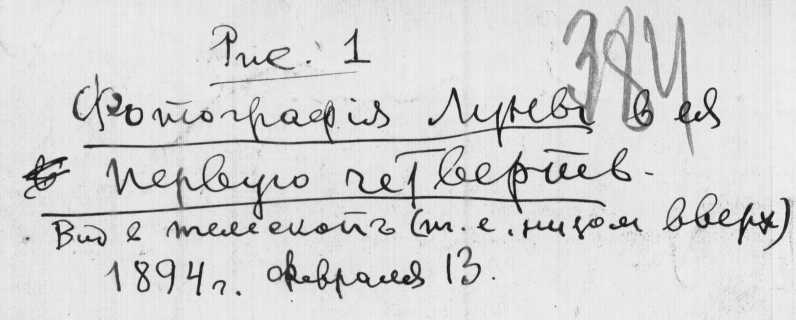 Рис. 1
384
Фотографія Луны в ея
первую четверть.
Вид в телескопъ (т.е. низом вверх)
1894 г. февраля 13.